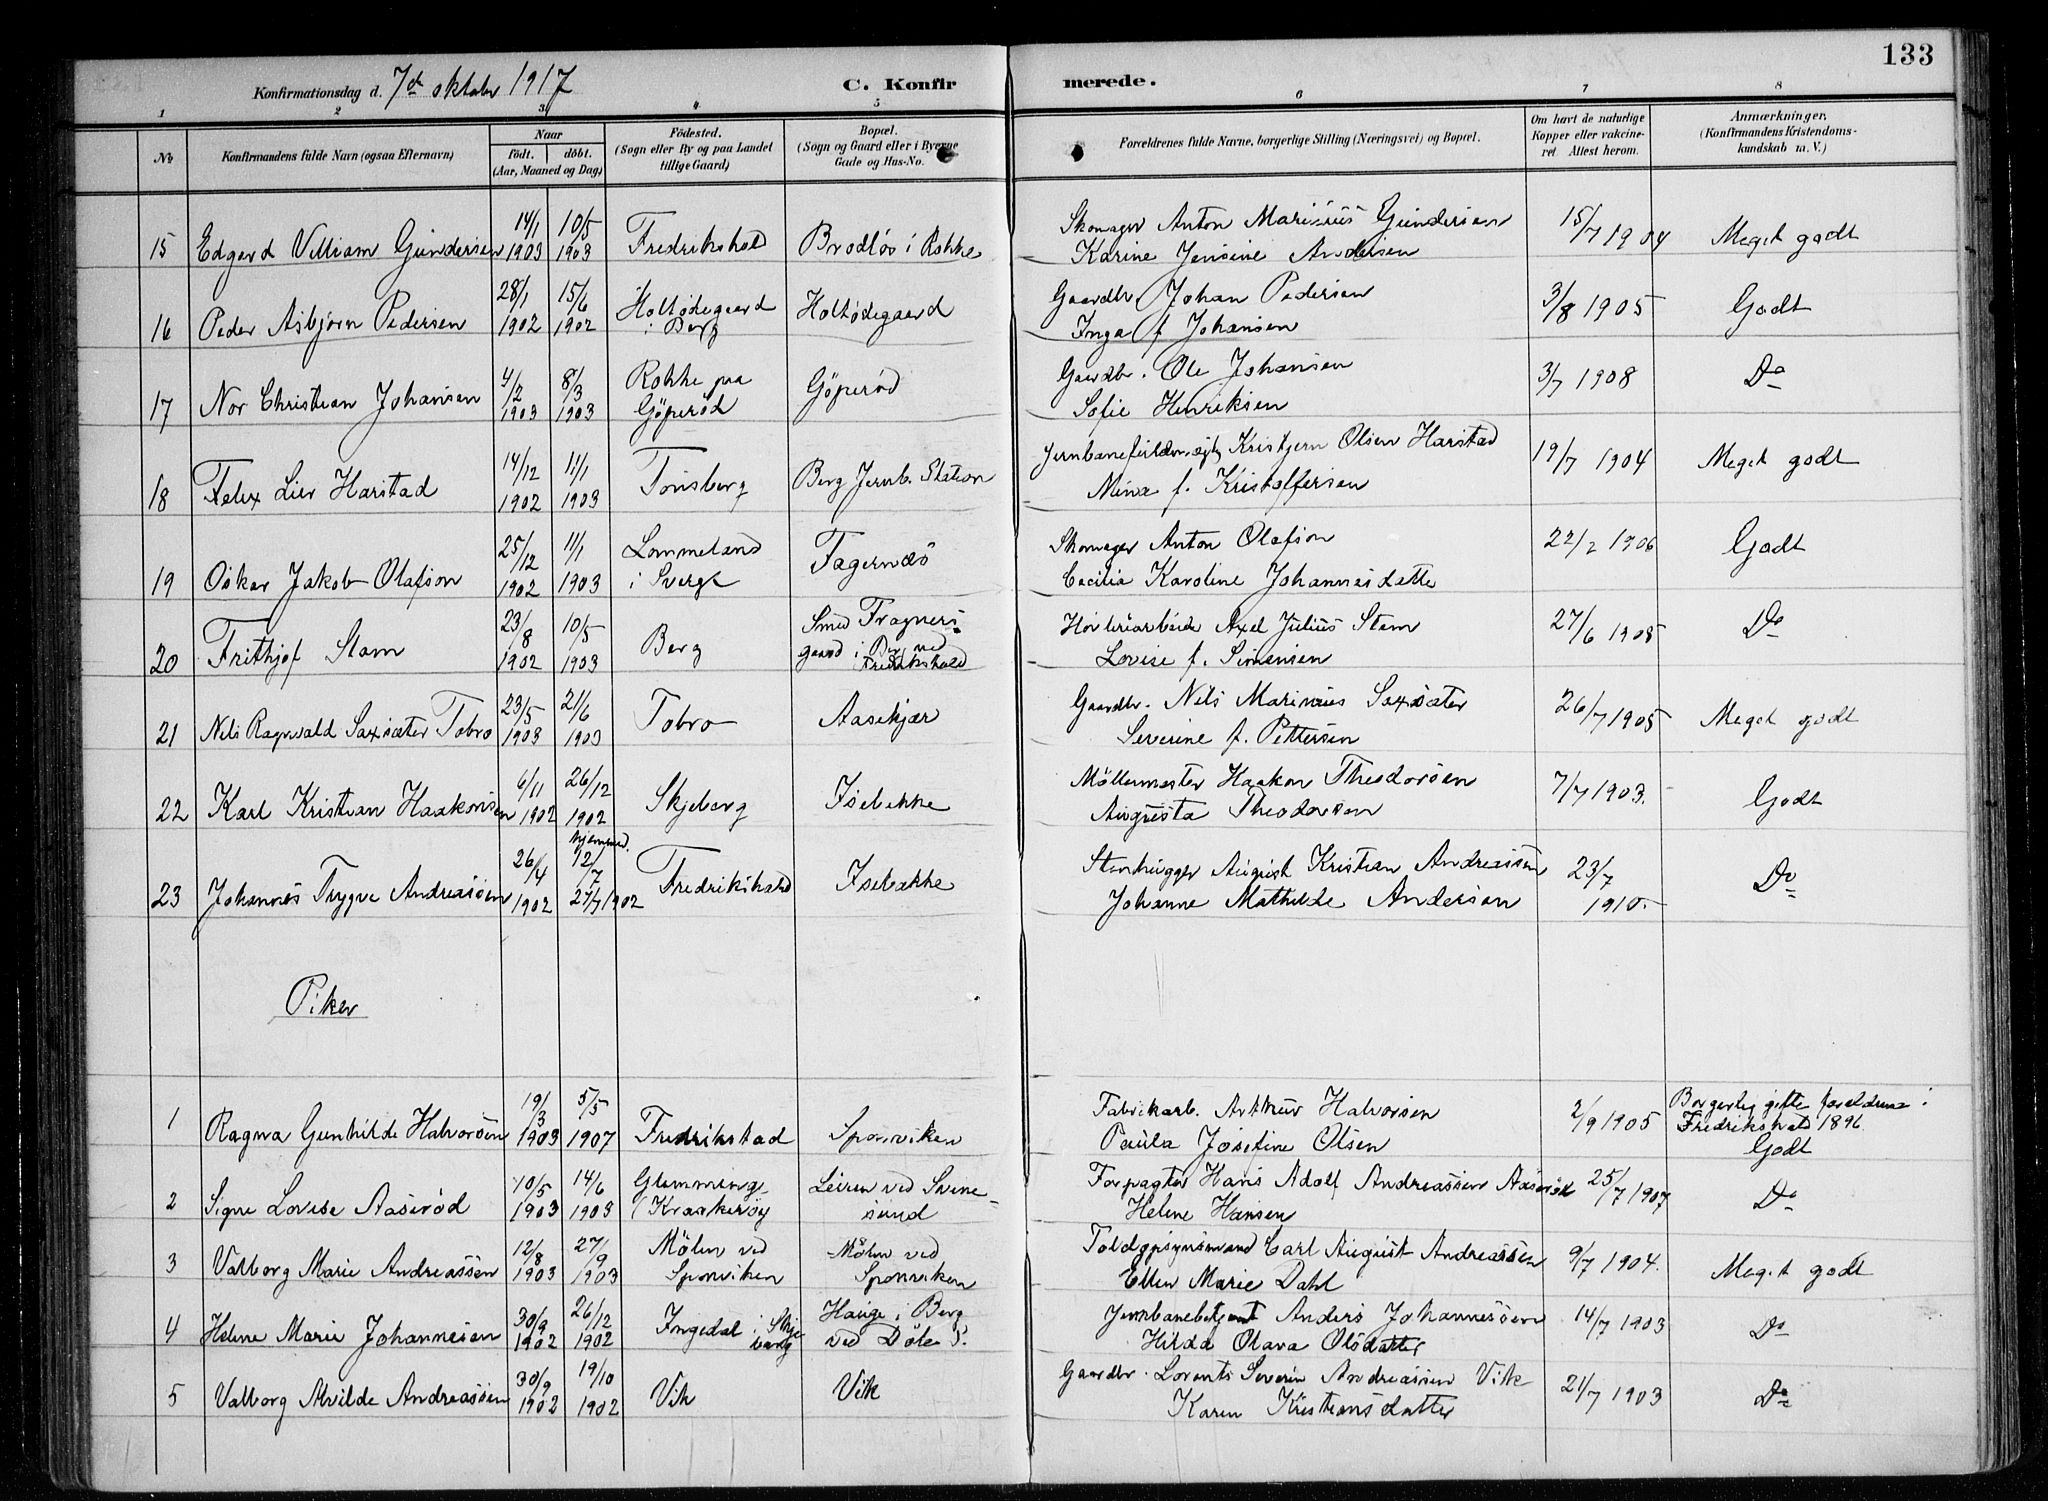 133
Konfirmationsdag d. 7de oktober 1917
C. Konfirmerede.
1 2 3 4 5 6 7 8
No Konfirmandens fulde Navn (ogsaa Efternavn) Naar født. døbt. (Aar, Maaned og Dag) Fødested. (Sogn eller By og paa Landet tillige Gaard) Bopæl. (Sogn og Gaard eller i Byerne Gade og Hus-No. Forældrenes fulde Navne, borgerlige Stilling (Næringsvei) og Bopæl. Om havt de naturlige Kopper eller vakcineret Attest herom. Anmærkninger. (Konfirmandens Kristendomskundskab m. V.)
15 Edgard Villiam Gundersen 14/1 1903 10/5 1903 Fredrikshald Brødløs i Rokke Skomager Anton Marinius Gundersen Karine Jensine Andersen 15/7 1904 Meget godt
16 Peder Asbjørn Pedersen 28/1 1902 15/6 1902 Holtødegaard i Berg Holtødegaard Gaardbr. Johan Pedersen Inga f. Johansen 3/8 1905 Godt
17 Nor Christian Johansen 4/2 1903 8/3 1903 Rokke paa Gøperød Gøperød Gaardbr. Ole Johansen Sofie Henriksen 3/7 1908 Do
18 Felix Lier Harstad 14/12 1902 11/1 1903 Tønsberg Berg Jernb. Station Kristjern Olsen Harstad Mina f. Kristoffersen 19/7 1904 Meget godt
19 Oskar Jakob Olafson 25/12 1902 11/1 1903 Lommeland i Sverge Fagernæs Skomager Anton Olafson Cecilia Karoline Johannesdatter 22/2 1906 Godt
20 Frithjof Stam 23/8 1902 10/5 1903 Berg Smed gaard i Berg ved Fredrikshald Axel Julius Stam Lovise f. Simensen 27/6 1905 Do
21 Nils Ragnvald Saxsæter Tobro 23/5 1903 21/6 1903 Tobro Aasekjær Gaardbr. Nils Marinius Saxsæter Severine f. Pettersen 26/7 1905 Meget godt
22 Karl Kristian Haakonsen 6/11 1902 26/12 1902 Skjeberg Isebakke Møllermester Haakon Theodorsen Augusta Theodorsen 7/7 1903. Godt
23 Johannes Trygve Andreassen 26/4 1902 hjemmed. 12/7 27/7 1902 Fredrikshald Isebakke Stenhugger August Kristian Andreassen Johanne Mathilde Andersen 23/7 1910. Do
Piker
1 Ragna Gunhilde Halvorsen 19/3 1903 5/5 1907 Fredrikstad Sponviken Fabrikarb. Arthur Halvorsen Paula Josefine Olsen 2/9 1905 Borgerlig gifte forældrene i Fredrikshald 1896. Godt
2 Signe Lovise Aaserød 10/5 1903 14/6 1903 Glemminge (Kraakerøy Leiren ved Svinesund Forpagter Hans Adolf Andreassen Aaserød Helene Hansen 25/7 1907 Do
3 Valborg Marie Andreassen 12/8 1903 27/9 1903 Mølen ved Sponviken Mølen ved Sponviken Toldopsynsmand Carl August Andreassen Ellen Marie Dahl 9/7 1904. Meget godt
4 Helene Marie Johannesen 30/9 1902 26/12 1902 Ingedal i Skjeberg Hauge i Berg ved Døle S. Jernbanebetjent Anders Johannessen Hilda Olava Olsdatter 14/7 1903 Do
5 Valborg Alvilde Andreassen 30/9 1902 19/10 1902 Vik Vik Gaardbr. Lorents Severin Andreassen Vik Karen Kristiansdatter 21/7 1903 Do